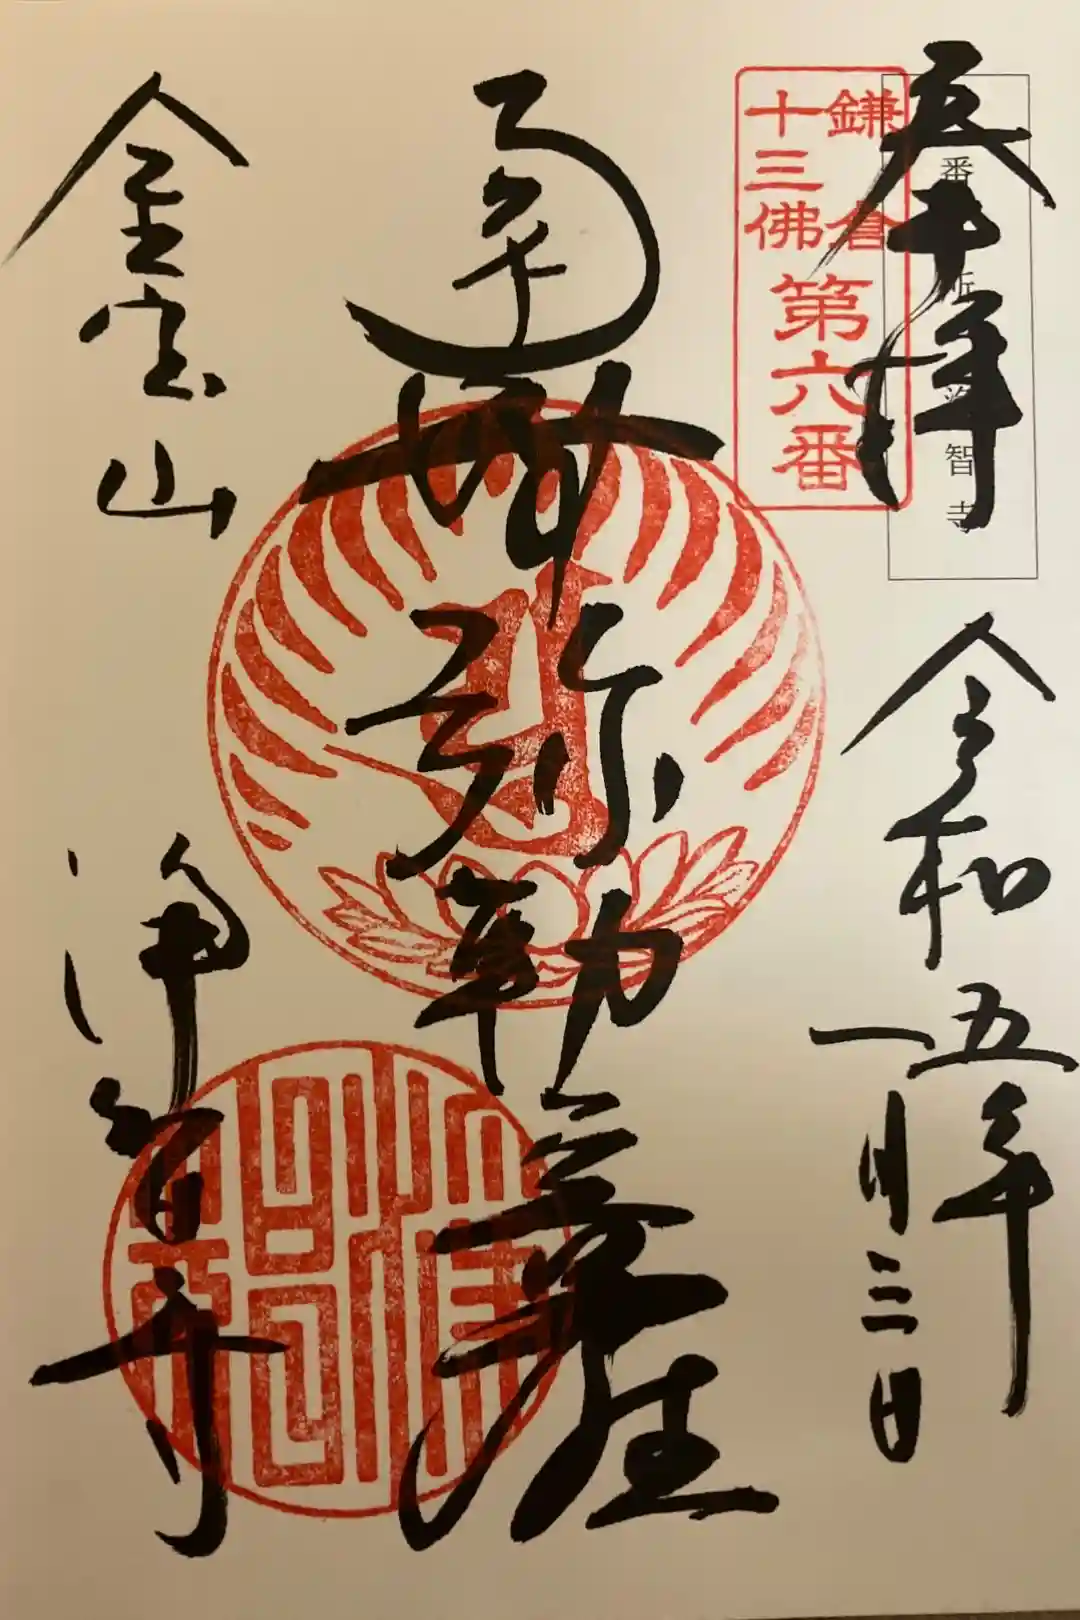 奉拝
鎌倉
十三佛
第六番
番
所
浄智寺
令和五年
一月三日
南無弥勒菩薩
金宝山
浄智寺